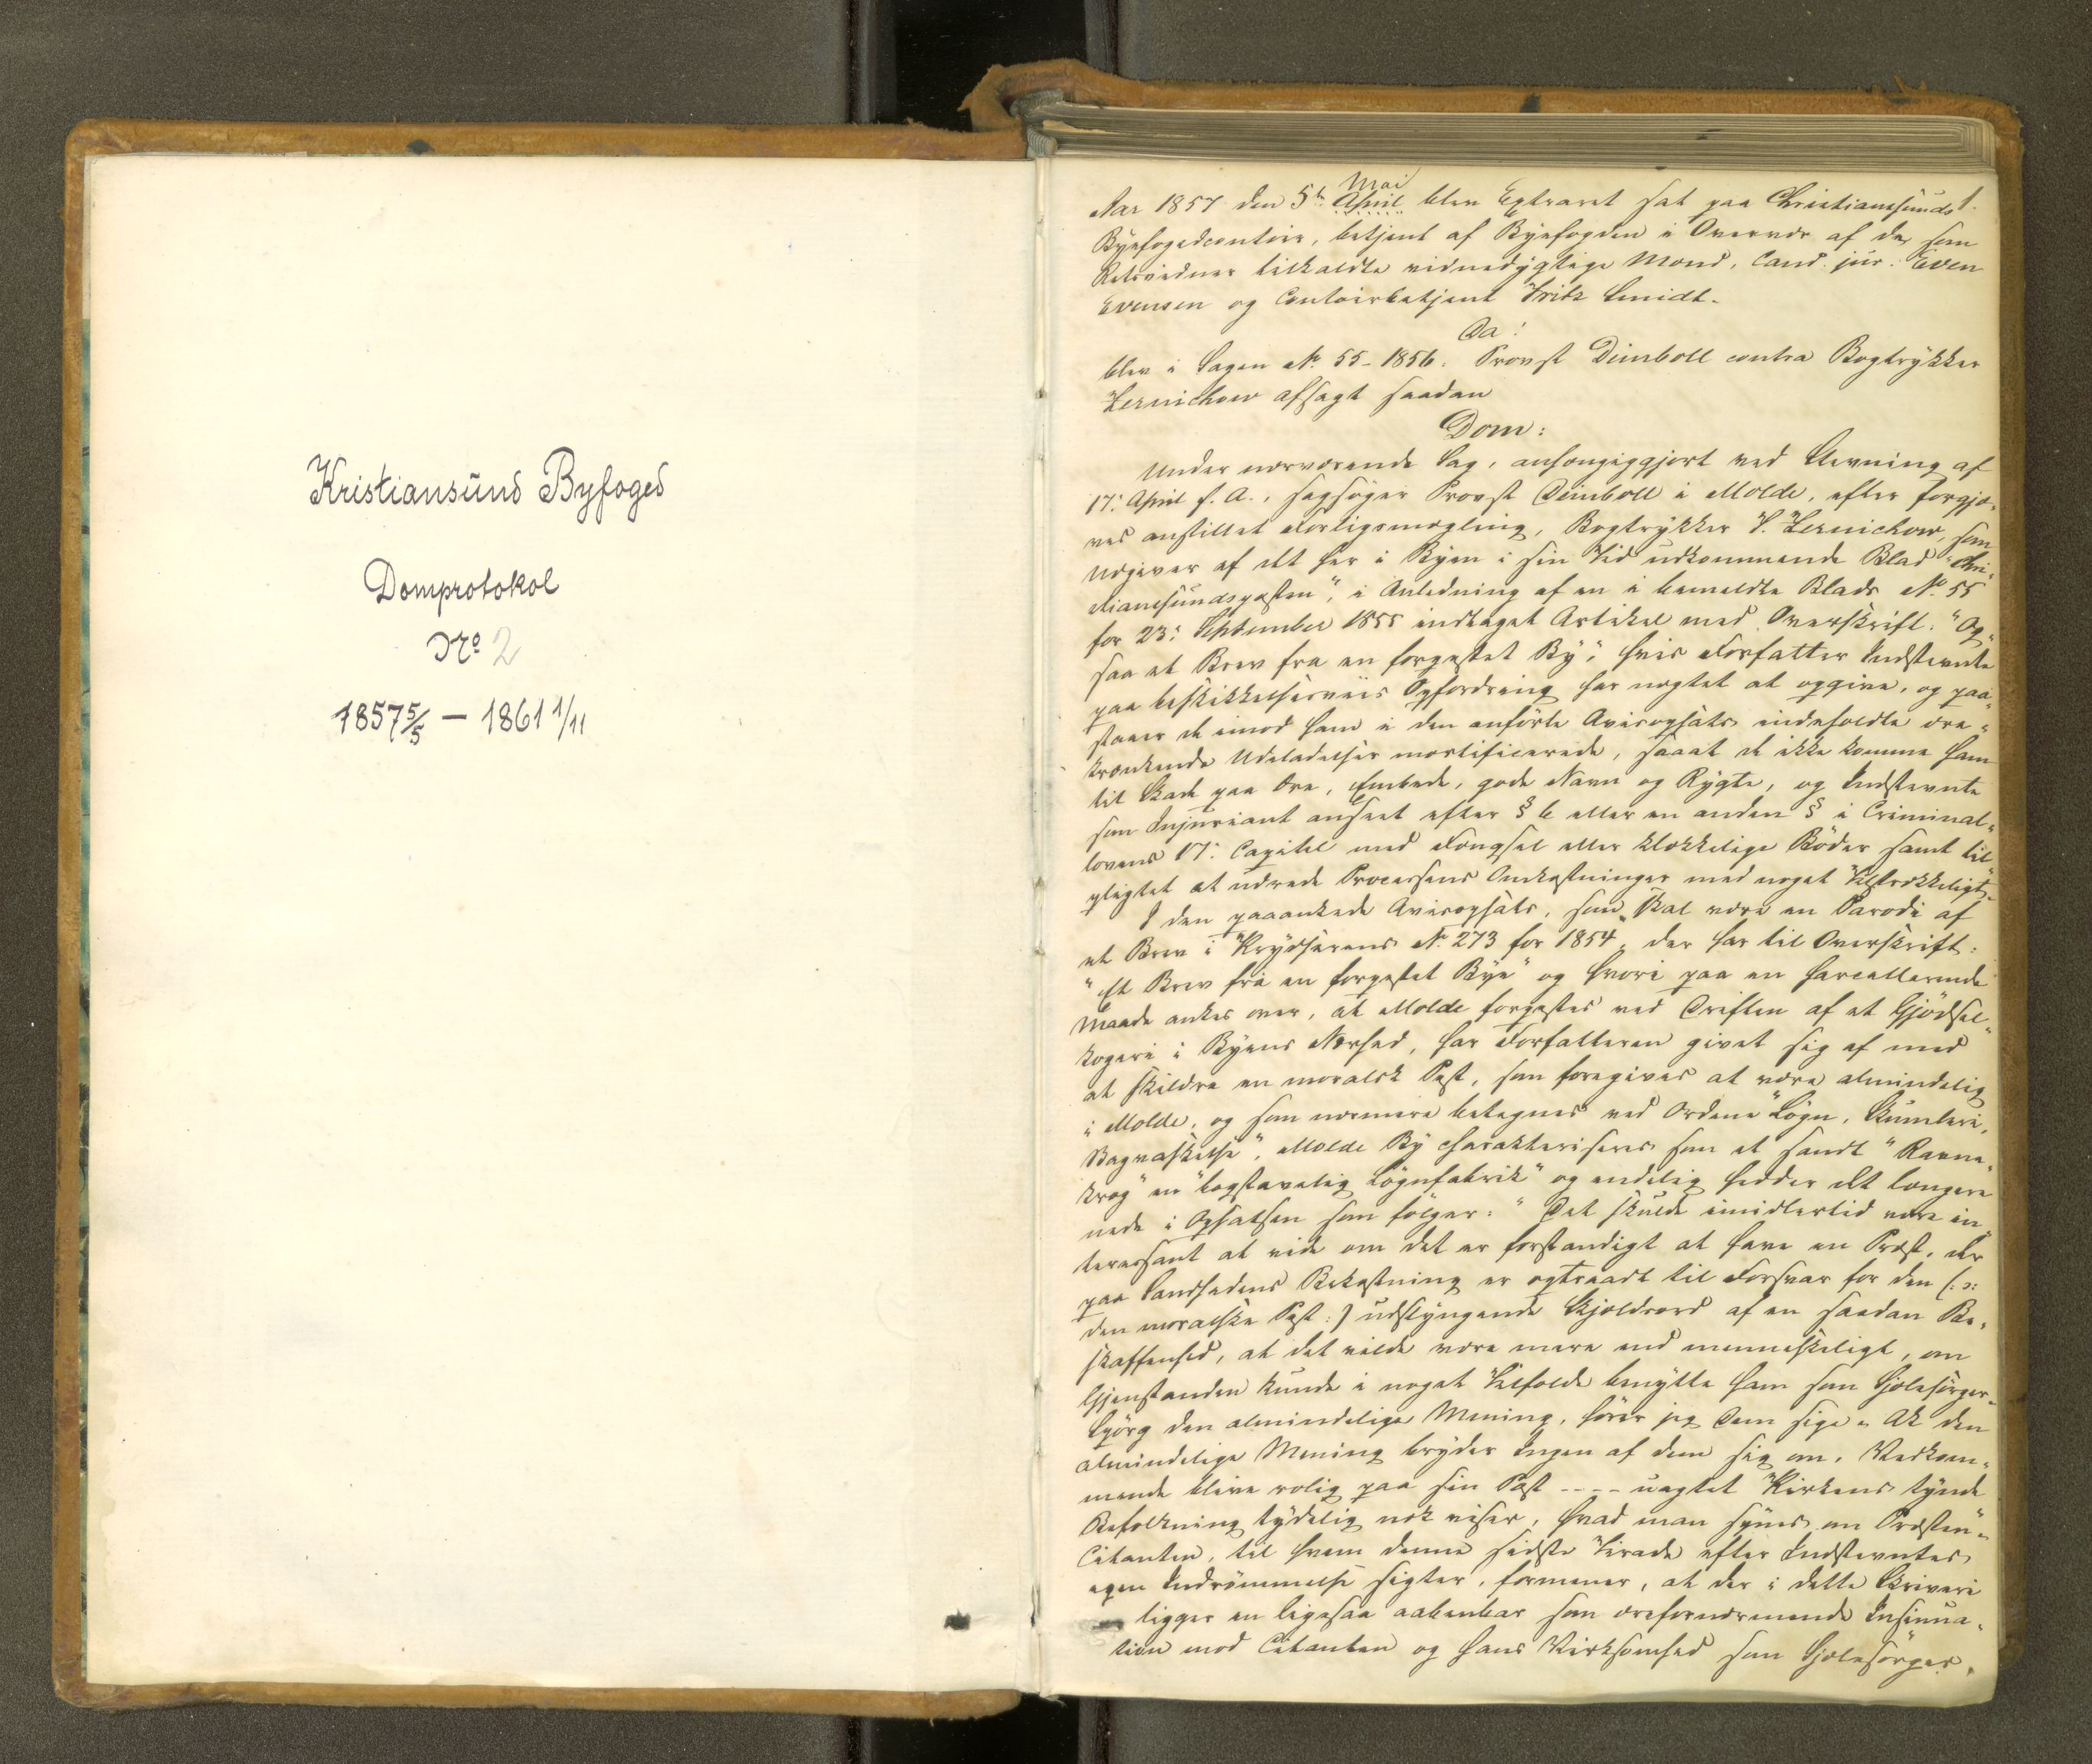 Kristiansund Byfoged
Domprotokol
No 2
1857 5/5 — 1861 1/11
1.
Mai
Aar 1857 den 5te April blev Extraret sat paa Christiansunds
Byefogedcontoir, betjent af Byefogden i Overvær af de som
Retsvidner tilkaldte vidnedygtige Mænd, Cand. jur. Even
Evensen og Contoirbetjent Fritz Smidt.
Da!
blev i Sagen No 55-1856. Provst Deinboll contra Bogtrykker
Zernichow afsagt saadan
Dom:
Under nærværende Sag, anhængiggjort ved Stevning af
17. April f. A., sagsøger Provst Deinboll i Molde, efter forgjæ-
ves anstillet Forligsmægling, Bogtrykker F. Zernichow, som
Udgiver af det her i Byen i sin Tid udkommende Blad "Chri-
stiansundsposten", i Anledning af en i bemeldte Blads No 55
for 23. September 1855 indtaget Artikel med Overskrift: "Og-
saa et Brev fra en forpestet By", hvis Forfatter Indstevnte
paa beskikkelsesviis Opfordring har nægtet at opgive, og paa-
staaer de imod ham i den anførte Avisopsats indeholdte ære-
krænkende Udeladelser mortificerede, saaat de ikke komme ham
til Skade paa Ære, Embede, gode Navn og Rygte, og Indstevnte
som Injuriant anseet efter § 6 eller en anden § i Criminal-
lovens 17. Capitel med Fængsel eller klækkelige Bøder samt til-
pligtet at udrede Processens Omkostninger med noget Tilstrækkeligt.
I den paaankede Avisopsats, som skal være en Parodi af
et Brev i Krydserens No 273 for 1854, der har til Overskrift:
"Et Brev fra en forpestet Bye" og hvori paa en harcellerende
Maade ankes over, at Molde forpestes ved Driften af et Gjødsel-
kogeri i Byens Nærhed, har Forfatteren givet sig af med
at skildre en moralsk Pest, som foregives at være almindelig
i Molde, og som nærmere betegnes ved Ordene "Løgn, Skumleri,
Bagvaskelse". Molde By charakteriseres som et sandt "Ravne-
krog" en "bogstavelig Løgnfabrik" og endelig hedder det længere
nede i Opsatsen som følger: "Det skulde imidlertid være in-
teressant at vide om det er forstandigt at have en Præst, der
paa Sandhedens Bekostning er optraadt til Forsvar for den (:ɔ:
den moralske Pest:) udslyngende Skjældsord af en saadan Be-
skaffenhed, at det vilde være mere end menneskeligt, om
Gjenstanden kunde i noget Tilfælde benytte ham som Sjælesørger.
Spørg den almindelige Mening, hører jeg Dem sige. Ak den
almindelige Mening bryder Ingen af dem sig om. Vedkom-
mende blive rolig paa sin Post ---- uagtet Kirkens tynde
Befolkning tydelig nok viser, hvad man synes om Præsten".
Citanten, til hvem denne sidste Tirade efter Indstevntes
egen Indrømmelse sigter, formener, at der i dette Skriveri
ligger en ligesaa aabenbar som ærefornærmende Insinua-
tion mod Citanten og hans Virksomhed som Sjælesørger,